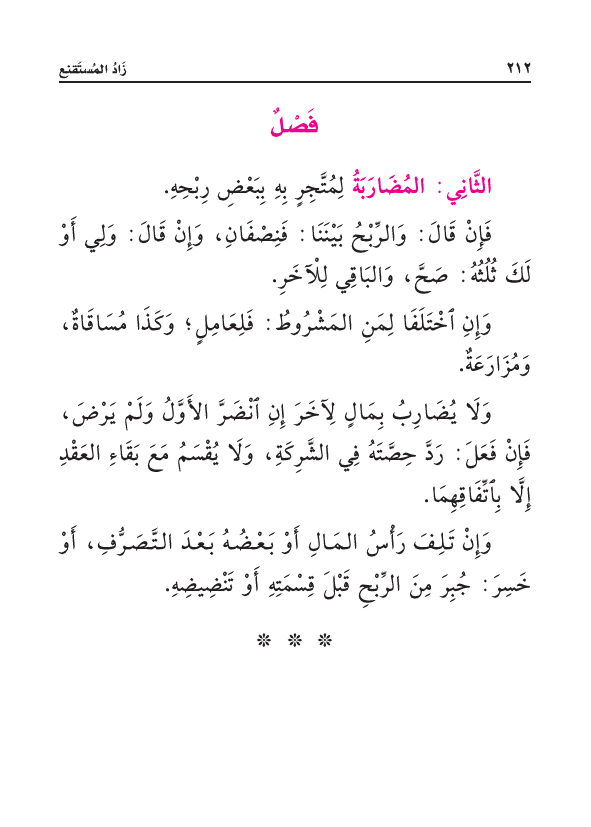 ٢١٢ زَادُ المُستَقنِع
فَصْلٌ
الثَّانِي: المُضَارَبَةُ لِمُتَّجِرٍ بِهِ بِبَعْضِ رِبْحِهِ.
فَإِنْ قَالَ: وَالرِّبْحُ بَيْنَنَا: فَنِصْفَانِ، وَإِنْ قَالَ: وَلِي أَوْ
لَكَ ثُلُثُهُ: صَحَّ، وَالبَاقِي لِلْآخَرِ.
وَإِنِ ٱخْتَلَفَا لِمَنِ المَشْرُوطُ: فَلِعَامِلٍ؛ وَكَذَا مُسَاقَاةٌ،
وَمُزَارَعَةٌ.
وَلَا يُضَارِبُ بِمَالٍ لِآخَرَ إِنِ ٱنْضَرَّ الأَوَّلُ وَلَمْ يَرْضَ،
فَإِنْ فَعَلَ: رَدَّ حِصَّتَهُ فِي الشَّرِكَةِ، وَلَا يُقْسَمُ مَعَ بَقَاءِ العَقْدِ
إِلَّا بِٱتِّفَاقِهِمَا.
وَإِنْ تَلِفَ رَأْسُ المَالِ أَوْ بَعْضُهُ بَعْدَ التَّصَرُّفِ، أَوْ
خَسِرَ: جُبِرَ مِنَ الرِّبْحِ قَبْلَ قِسْمَتِهِ أَوْ تَنْضِيضِهِ.
* * *